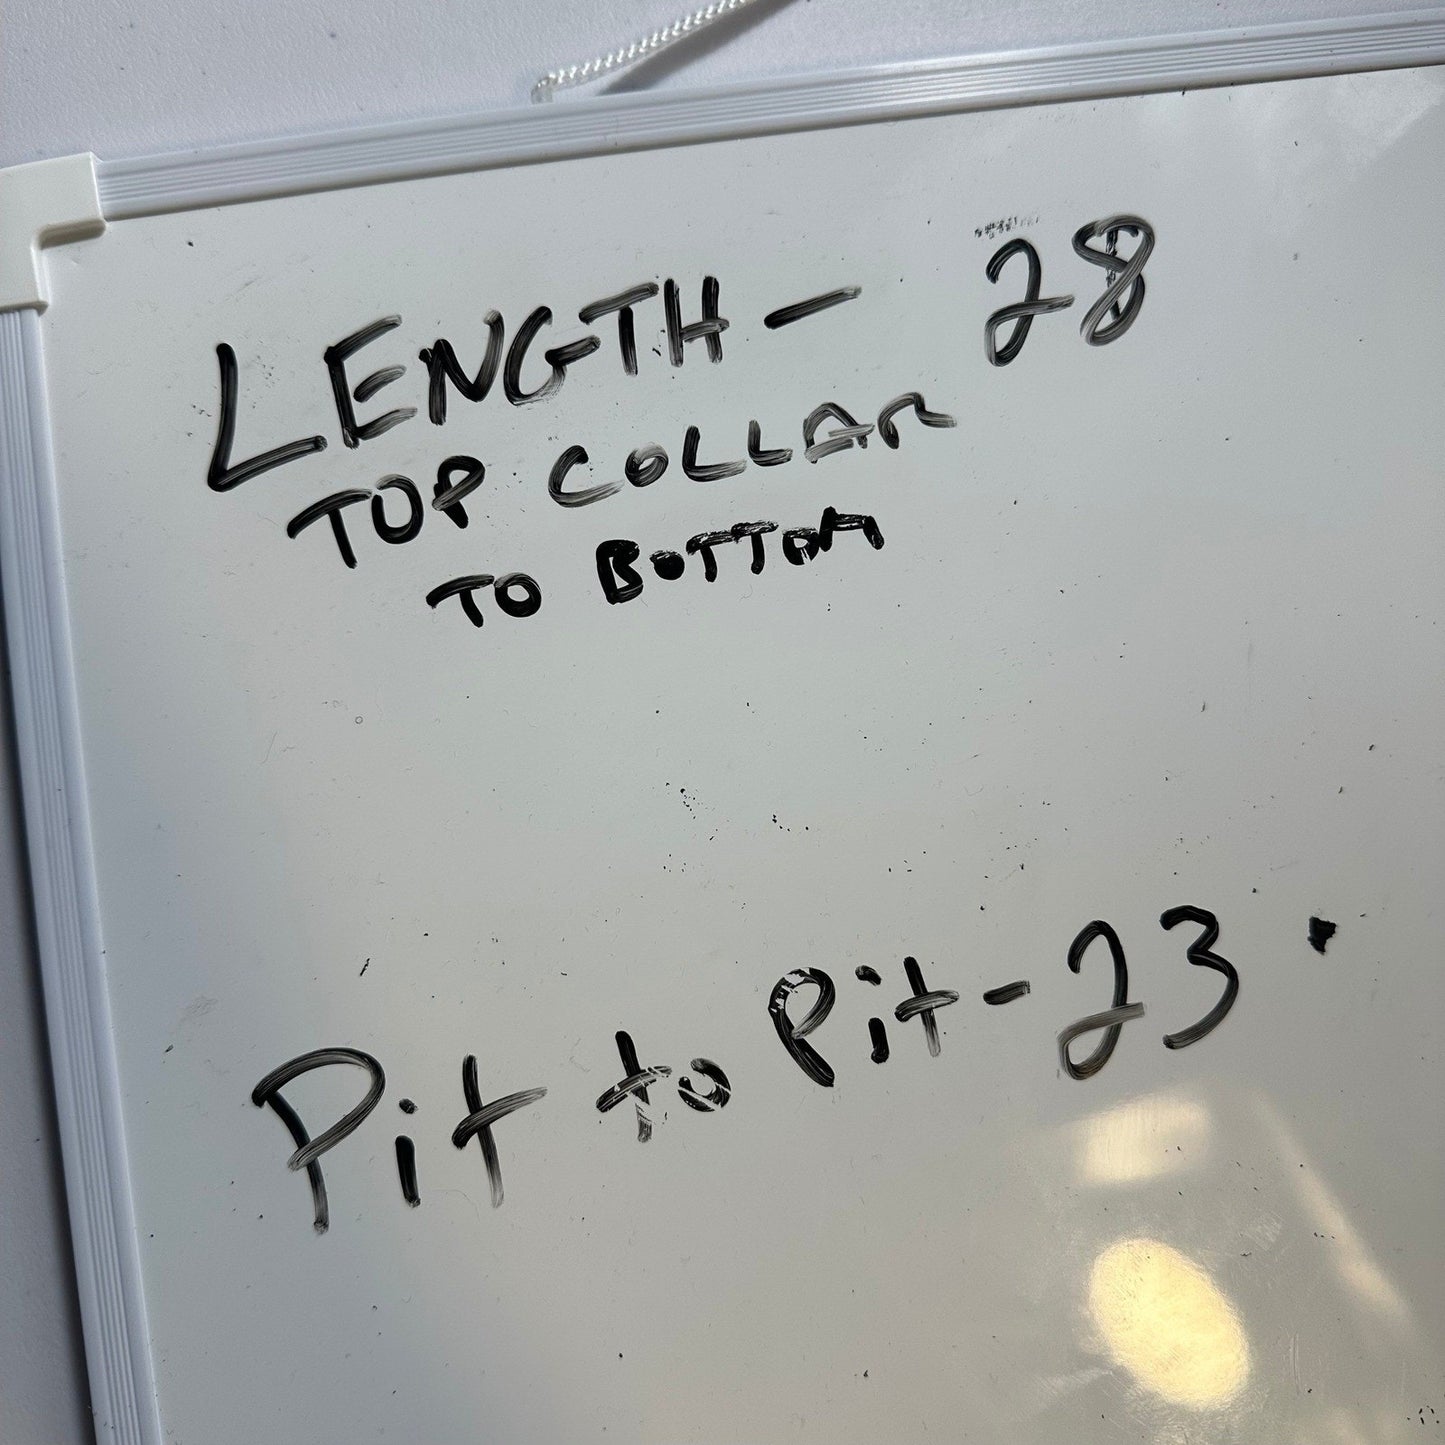 LENGTH - 28
TOP COLLAR
TO BOTTOM
Pit to Pit - 23